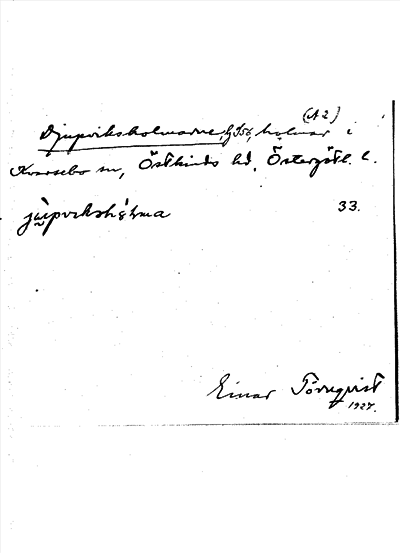 (A2)
Djupviksholmarne, holmar i
Kvarsebo sn, Östkinds hd, Östergötl. l.
jùpvikshòlma 33.
Einar Törnqvist
1927.